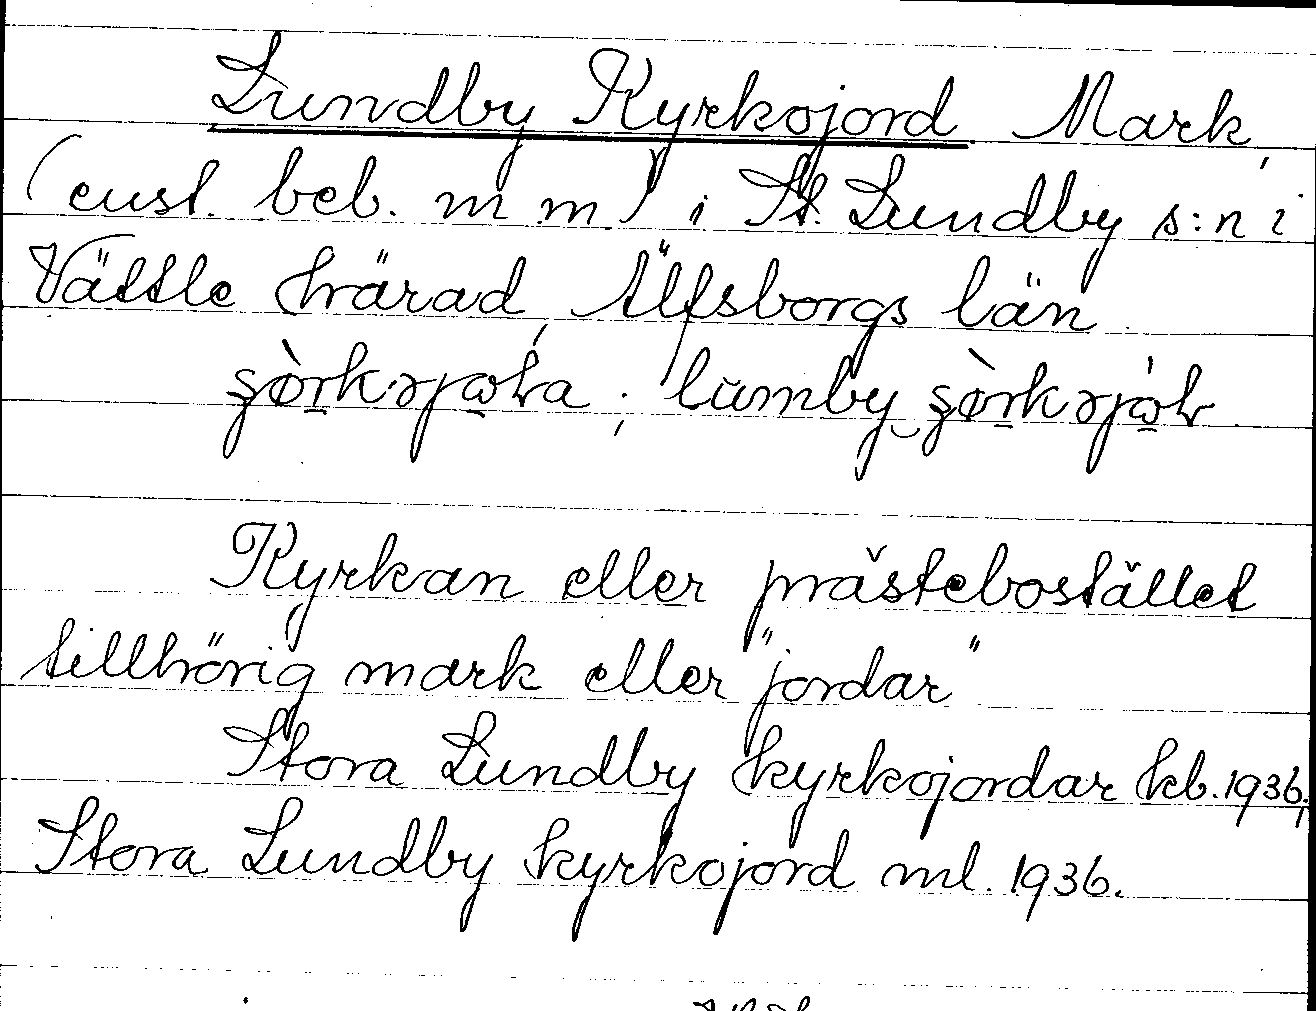 Lundby Kyrkojord Mark,
(enst. beb. m m) i St. Lundby s:n i
Vättle härad, Älfsborgs län
; lumby
Kyrkan eller prästebostället
tillhörig mark eller "jordar"
Stora Lundby kyrkojordar kb. 1936,
Stora Lundby kyrkojord ml. 1936.